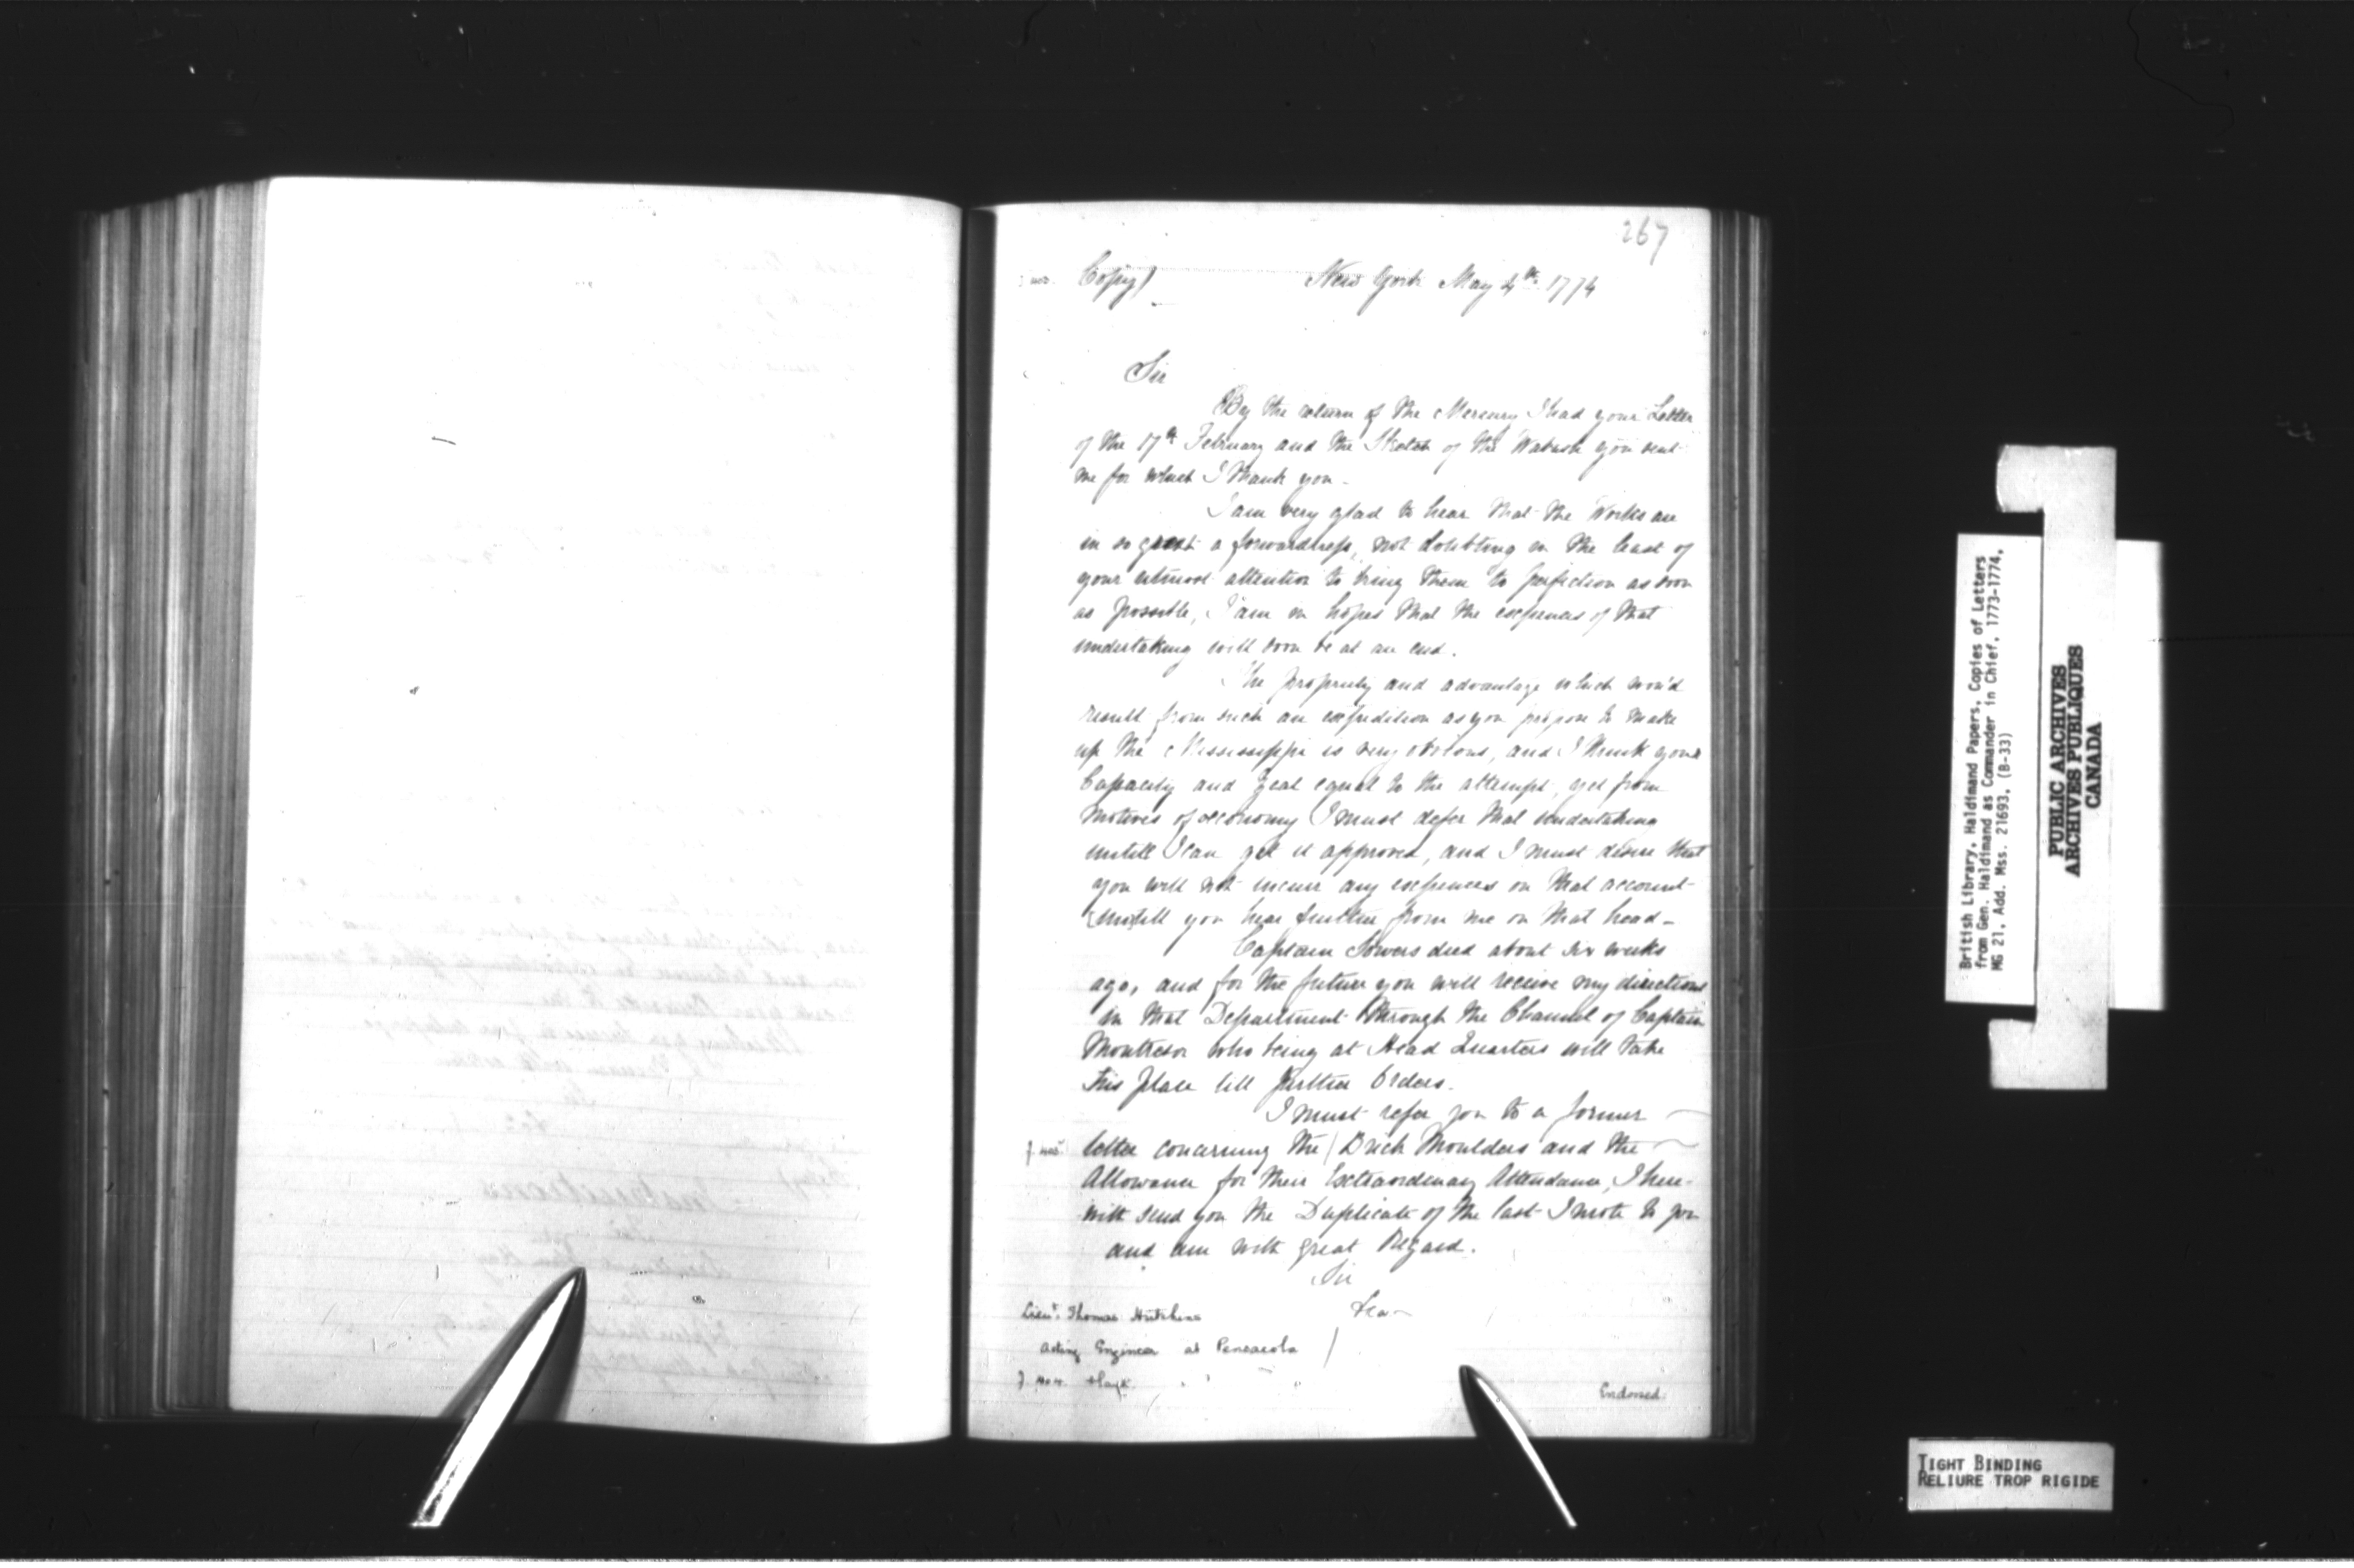 267
Copy) New York May 4th 1774
Sir
By the return of the Mercury I had your Letter
of the 17th February and the Sketch of the Wabash you sent
me for which I thank you.
I am very glad to hear that the Works are
in so great a forwardness, not doubting in the least of
your utmost attention to bring them to perfection as soon
as possible, I am in hopes that the expences of that
undertaking will soon be at an end.
The propriety and advantage which wou'd
result from such an expedition as you propose to make
up the Mississippi is very obvious, and I think your
Capacity and Zeal equal to the attempt, yet from
motives of oeconomy I must defer that undertaking
untill I can get it approved, and I must desire that
you will not incurr any expences on that account
untill you hear further from me on that head—
Captain Sowers died about six weeks
ago, and for the future you will receive my directions
in that Department through the Channel of Captain
Montresor who being at Head Quarters will take
his place till further Orders.
I must refer you to a former
f. 405 letter concerning the / Brick Moulders and the
Allowance for their Extraordinary Attendance, I here-
with send you the Duplicate of the last I wrote to you
and am with great Regard.
Sir
&ca
Lieut. Thomas Hutchins
Acting Engineer at Pensacola
Endorsed:
British Library, Haldimand Papers, Copies of Letters
from Gen. Haldimand as Commander in Chief, 1773-1774,
MG 21, Add. Mss. 21693, (B-33)
PUBLIC ARCHIVES
ARCHIVES PUBLIQUES
CANADA
TIGHT BINDING
RELIURE TROP RIGIDE